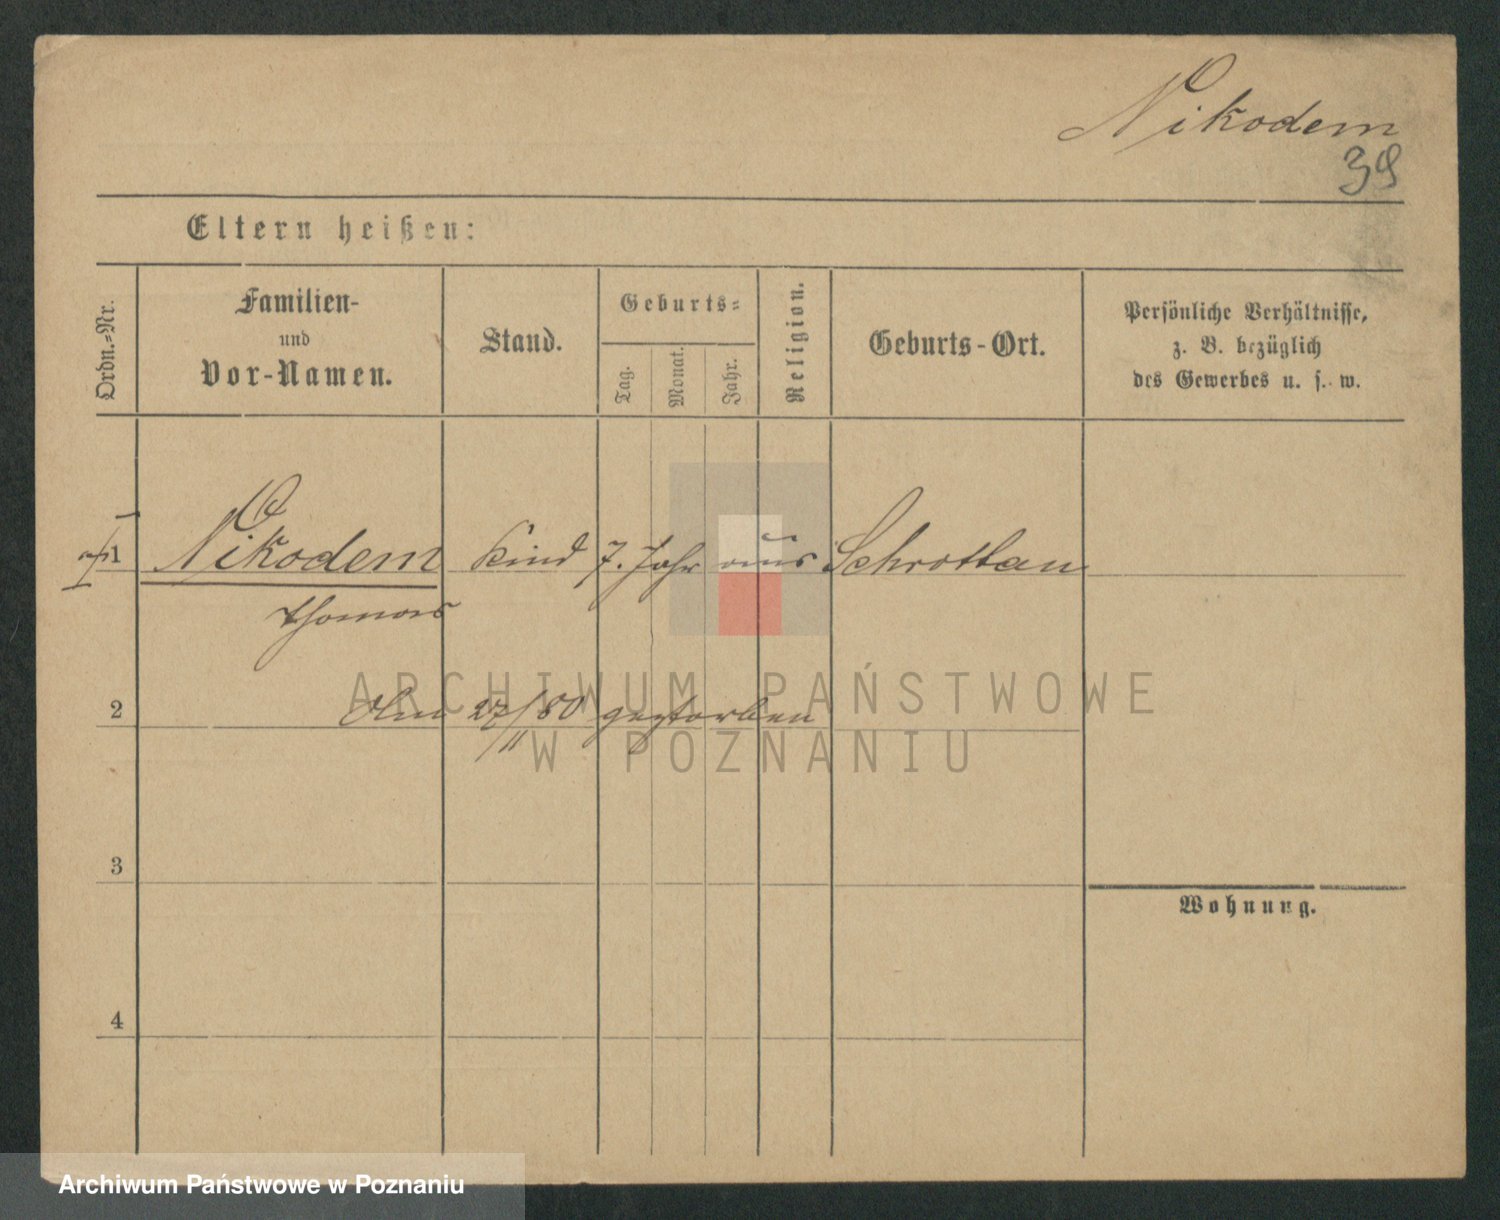 Nikodem
39
Eltern heißen:
Ordn.-Nr.
Familien-
und
Vor-Namen.
Stand.
Geburts-
Tag.
Monat.
Jahr.
Religion.
Geburts-Ort.
Persönliche Verhältnisse,
z. B. bezüglich
des Gewerbes u. s. w.
1 Nikodem Kind 7. Jahr aus Schrottau
Thomas
2 Am 27/11 80 gestorben
3
Wohnung.
4
ARCHIWUM PAŃSTWOWE
W POZNANIU
Archiwum Państwowe w Poznaniu